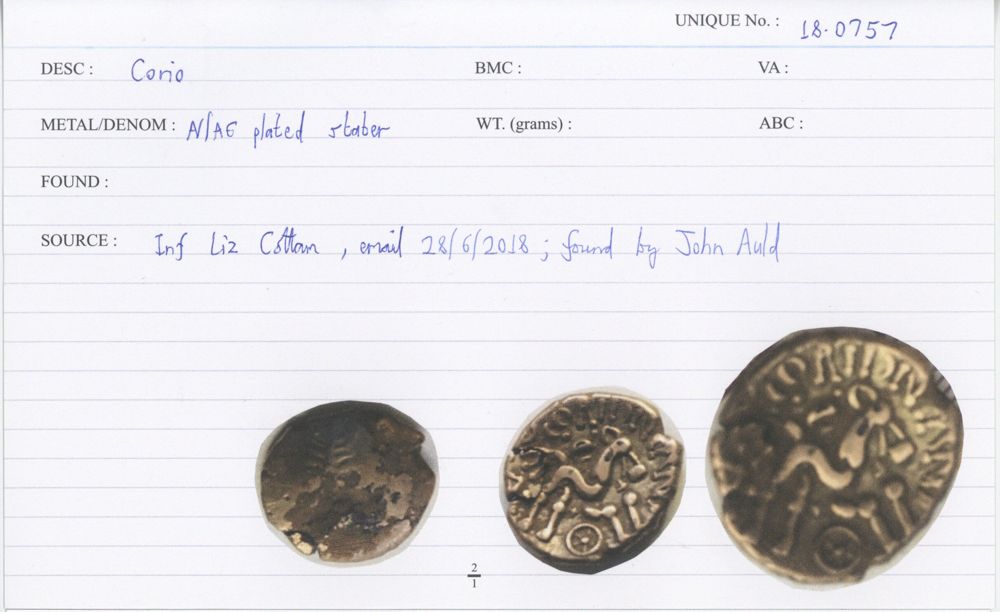 UNIQUE No. : 18.0757
DESC : Corio BMC : VA :
METAL/DENOM : N/AE plated stater WT. (grams) : ABC :
FOUND :
SOURCE : Inf Liz Cottam , email 28/6/2018 ; found by John Auld
2
1